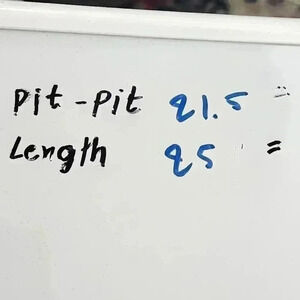 Pit-Pit 21.5 =
Length 25 =